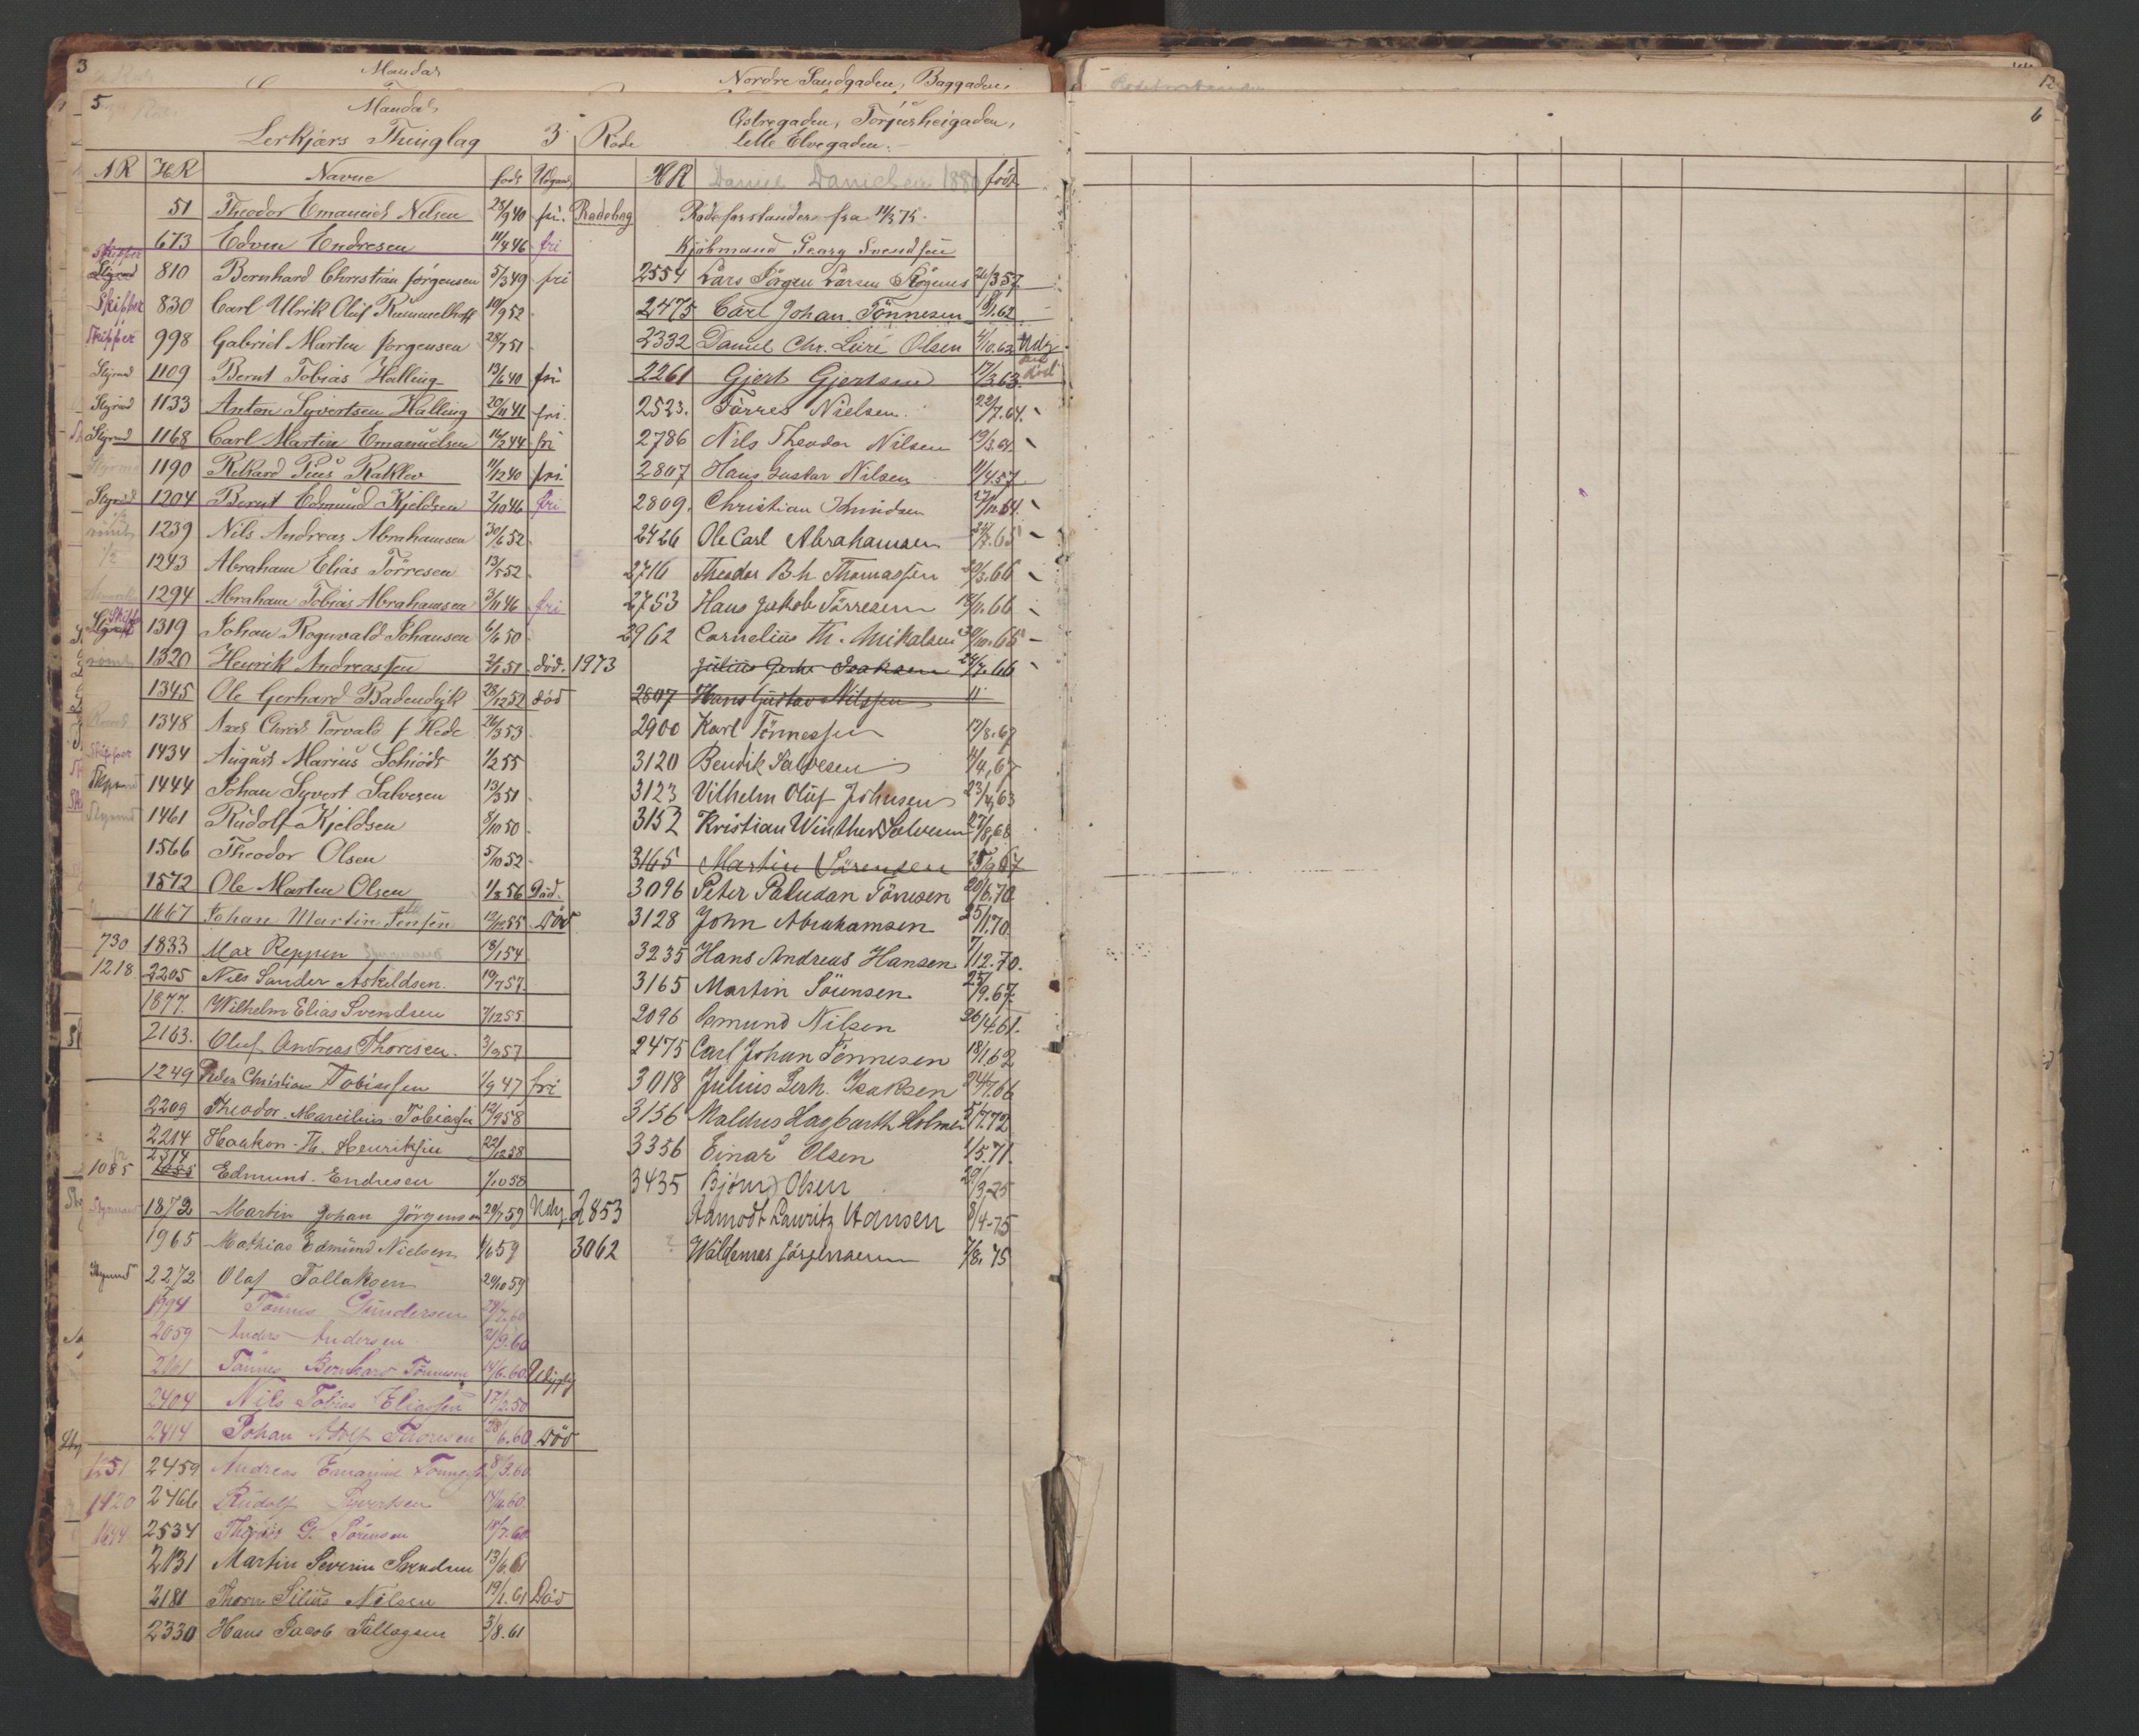 3
Mandal
Nordre Sandgaden, Baggaden,
12
5
Mandals
6
Østregaden, Torjusheigaden,
Lerkjærs Thinglag 3 Rode
lille Elvegaden.
AR HR Navne født Udgand
HR Daniel Danielsen født
51 Theodor Emanuel Nilsen 28/9 40 fri. Rodebog
Rodeforstander fra 11/3 75.
673 Edvin Endresen 11/4 46 fri
Kjøbmand Georg Svendsen
Skipper Styrmd 810 Bernhard Christian Jørgensen 5/3 49 fri
2554 Lars Jörgen Larsen 26/3 57
Skipper 830 Carl Ulrik Oluf Rummelhoff 10/9 52
2475 Carl Johan Tönnesen 18/1.62
Skipper 998 Gabriel Martin Jørgensen 28/7 51
2332 Daniel Chr. Olsen 4/10.62 Udg
Styrmd 1109 Bernt Tobias Halling 13/6 40 fri
2261 Gjert Gjertsen 17/3.63.
Styrmd 1133 Anton Syvertsen Halling 20/11 41 fri.
2523. Törres Nielsen. 22/7.64.
Styrmd 1168 Carl Martin Emanuelsen 14/2 44 fri
2786 Nils Theodor Nilsen 19/3.64.
Styrmd 1190 Rikard Pius Rakklev 11/12 40 fri.
2807 Hans Gustav Nilsen 11/4.57
Styrmd 1204 Bernt Edmund Kjeldsen 2/10 46 fri
2809. Christian 27/11.64.
1239 Nils Andreas Abrahamsen 30/6 52
2426 Ole Carl Abrahamsen 24/7.65
1/2 1243 Abraham Elias Törresen 13/5 52
2716 Theodor B.h Thomassen 20/3.66
1294 Abraham Tobias Abrahamsen 3/11 46 fri
2753 Hans Jakob Törresen 18/11.66
Styrmd Skipp 1319 Johan Rognvald Johansen 6/6 50
2962 Cornelius Th. Mikalsen 30/10.65
1320 Henrik Andreassen 2/1 51 död. 1973
Julius Gerh. Isaksen 24/7.66
1345 Ole Gerhard Badendyk 28/12 52 död
2807 Hans Gustav Nilssen "
1348 Axel Christ Torvald f Hede 26/3 53
2900 Karl Tönnessen 13/8.67
Skipper 1434 August Marius Schiödt 1/2 55
3120 Bendik Salvesen 4/4.67
1444 Johan Syvert Salvesen 13/3 51
3123 Vilhelm Oluf Johnsen 23/4.63
Styrmd 1461 Rudolf Kjeldsen 8/10 50
3152 Kristian Winther Salvesen 27/8.68
1566 Theodor Olsen 5/10 52
3165 Martin Sörensen 25/9 67
1572 Ole Martin Olsen 1/8 56 Död.
3096 Peter Paludan Tönnesen 20/6.70
1667 Johan Martin Jensen 12/12 55 Död
3128 John Abrahamsen 25/11.70
730 1833 Max Reppen 18/1 54
3235 Hans Andreas Hansen 7/12.70.
1218 2205 Nils Sander Askildsen. 19/7 57
3165 Martin Sörensen 25/9.67.
1877. Wilhelm Elias Svendsen 7/12 55
2096 Gemund Nilsen 26/4.61.
2163. Oluf Andreas Thoresen. 3/9 57
2475 Carl Johan Tönnesen 18/1 62
1249 Peder Christian Tobiassen 1/9 47 fri
3018 Julius Gerh. Isaksen 24/7.66
2209 Theodor Marcilius Tobiassen 12/9 58
3156 Haagbarth Holmer 5/7.72
2214 Haakon Th. Henriksen 22/12 58
3356 Einar Olsen 1/5.71.
1085 2314 1085 Edmund Endresen 1/10 58
3435 Björn Olsen 29/3.25
Styrmand 1872 Martin Johan Jörgensen 29/7 59 Udg
2853 Aamodt Lauritz Hansen 8/4-75
1965 Mathias Edmund Nielsen 1/6 59
3062 Waldemar Jörgensen 7/8.75
Styrmd 2272 Olaf Tallaksen 29/10 59
1994 Tönnes Gundersen 29/2.60
2059 Anders Andersen 21/9.60
2101 Tönnes Bernhard Tönnesen 14/6.60
2404 Nils Tobias Eliassen 17/2.50
2414 Johan Adolf Thoresen 28/6.60 Död
1251 2459 Andreas Emanuel 8/3.60
1420 2466 Rudolf Sivertsen 14/4.60.
1644 2534 G. Sörensen 14/7.60
2131 Martin Severin Svendsen 13/6.61
2181 Nilsen 19/1.61 Död
2330 Hans Jacob Tallagsen 3/8.61